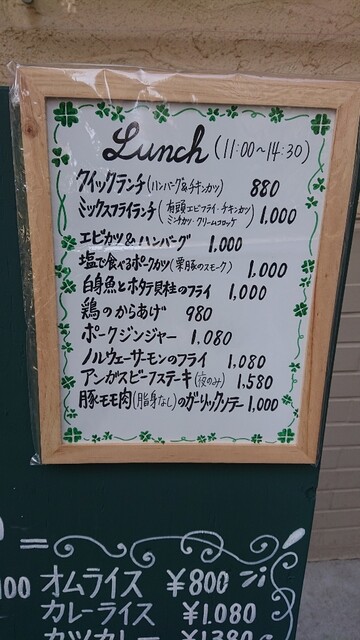 Lunch (11:00~14:30)
クイックランチ(ハンバーグ&チキンカツ) 880
ミックスフライランチ(有頭エビフライ・チキンカツ ミンチカツ・クリームコロッケ) 1,000
エビカツ&ハンバーグ 1,000
塩で食べるポークカツ(栗豚のスモーク) 1,000
白身魚とホタテ貝柱のフライ 1,000
鶏のからあげ 980
ポークジンジャー 1,080
ノルウェーサーモンのフライ 1,080
アンガスビーフステーキ(夜のみ) 1,580
豚モモ肉(脂身なし)のガーリックソテー 1,000
オムライス ¥800
カレーライス ¥1.080
カツカレー ¥1380